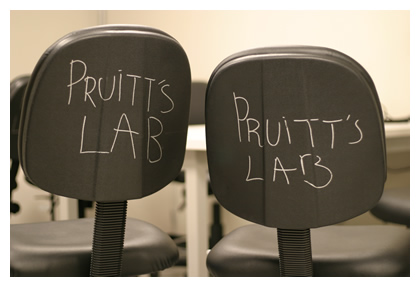 PRUiTT'S
LAB
PRUiTT'S
LAB